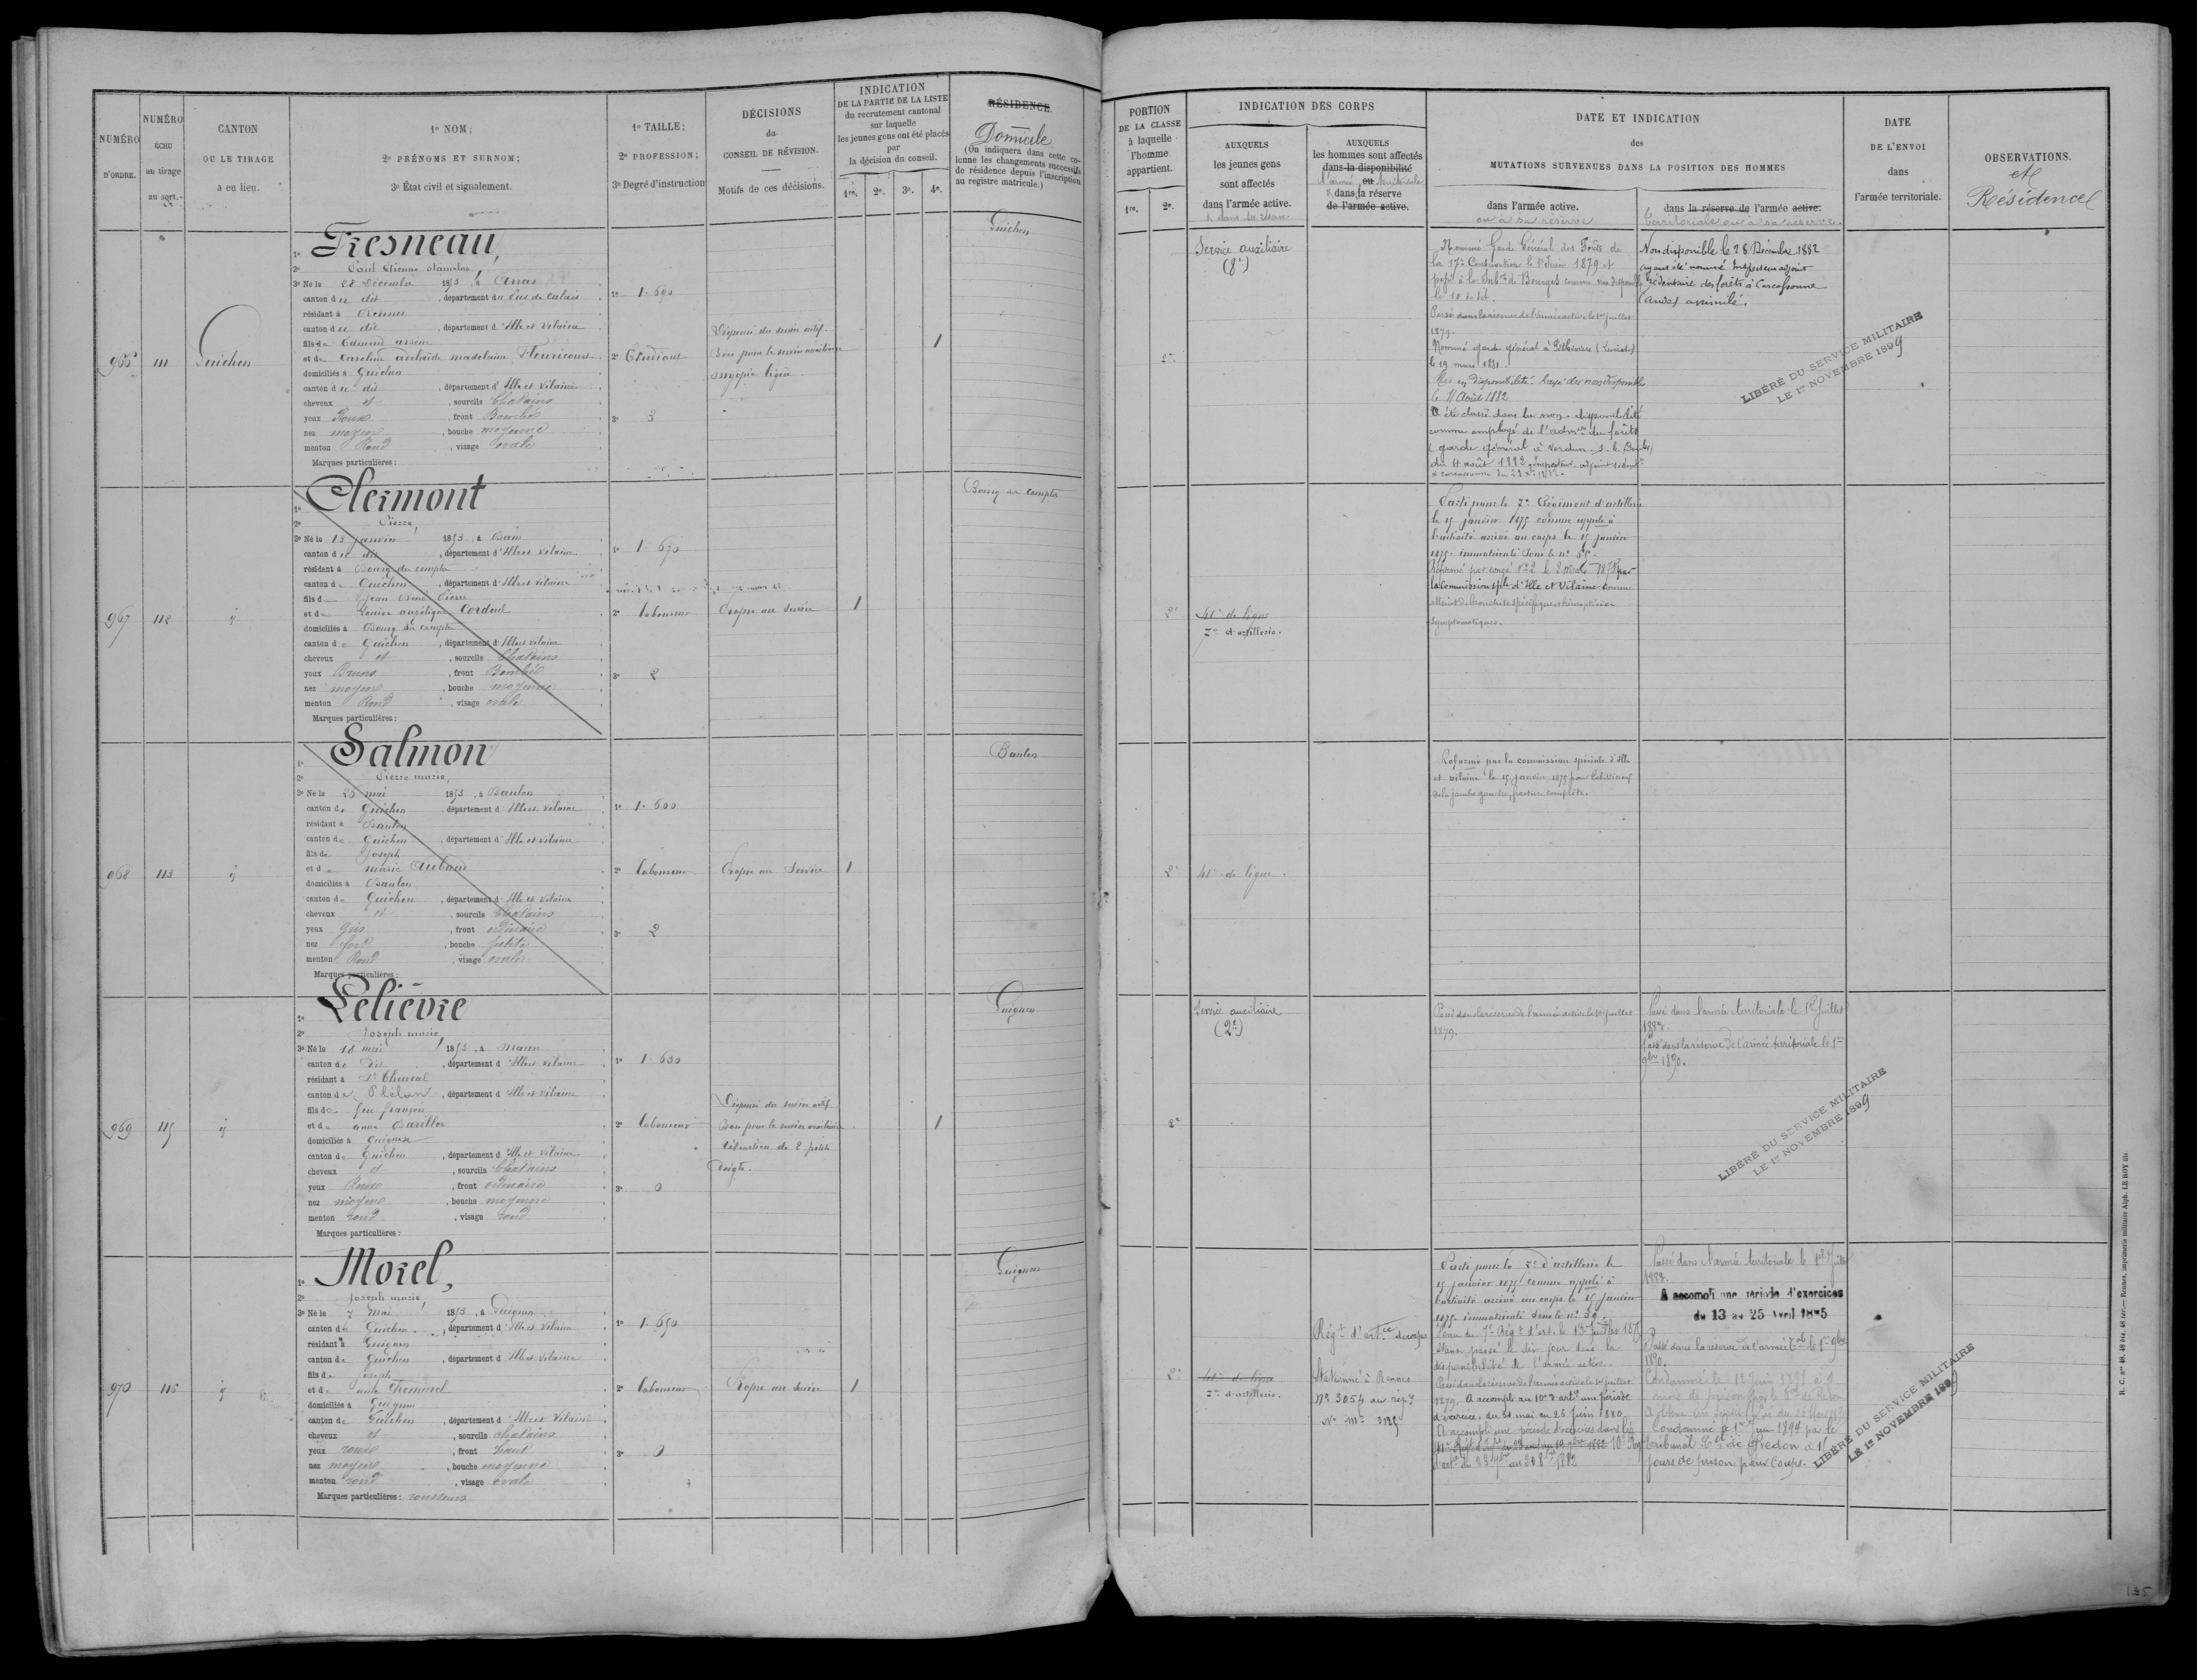 NUMÉRO
D'ORDRE.
NUMÉRO
ÉCHU
au tirage
au sort.
CANTON
OU LE TIRAGE
a eu lieu.
1º NOM;
2º PRÉNOMS ET SURNOM;
3º État civil et signalement.
1º TAILLE;
2º PROFESSION;
3º Degré d'instruction
DÉCISIONS
du
CONSEIL DE RÉVISION.
Motifs de ces décisions.
INDICATION
DE LA PARTIE DE LA LISTE
du recrutement cantonal
sur laquelle
les jeunes gens ont été placés
par
la décision du conseil.
1re. 2e. 3e. 4e.
RÉSIDENCE
Domicile
(On indiquera dans cette co-
lonne les changements successifs
de résidence depuis l'inscription
au registre matricule.)
PORTION
DE LA CLASSE
à laquelle
l'homme
appartient.
1re. 2e.
INDICATION DES CORPS
AUXQUELS
les jeunes gens
sont affectés
dans l'armée active.
AUXQUELS
les hommes sont affectés
dans la disponibilité
ou
dans la réserve
de l'armée active.
DATE ET INDICATION
des
MUTATIONS SURVENUES DANS LA POSITION DES HOMMES
dans l'armée active.
ou à sa réserve
dans la réserve de l'armée active.
territoriale ou à sa réserve.
DATE
DE L'ENVOI
dans
l'armée territoriale.
OBSERVATIONS.
et
Résidence
965 111 Guichen
1º Fresneau,
2º Paul Etienne Stanislas,
3º Né le 28 Décembre 1853, à Arras
canton du dit, département du Pas de Calais
résidant à Rennes
canton du dit, département d'Ille et Vilaine
fils de Edmond
et de Caroline adelaïde madelaine Fleuricourt
domiciliés à Guichen
canton du dit, département d'Ille et Vilaine
cheveux et, sourcils Chatains
yeux Roux, front Bombé
nez moyen, bouche moyenne
menton Rond, visage ovale
Marques particulières:
1º 1.690
2º Etudiant
3º 3
Dispensé du service actif.
Bon pour le service auxiliaire
myopie légère
1
Guichen
2e
Service auxiliaire
Nommé Garde Général des Forêts de
la 17e Conservation le 1er Juin 1879 et
Passé dans la réserve de l'armée active le 1er juillet
1879.
le 19 mars 1881.
le 11 Août 1882
A été classé dans la non-disponibilité
comme employé de l'admon des forêts
Non disponible le 28 Décembre 1882
ayant été nommé Inspecteur adjoint
sédentaire des forêts à Carcassonne
(Aude) assimilé.
LIBÉRÉ DU SERVICE MILITAIRE
LE 1er NOVEMBRE 1899
967 112 id
1º Clermont
2º Pierre,
3º Né le 13 janvier 1853, à Bain
canton du dit, département d'Ille et Vilaine
résidant à Bourg des comptes
canton de Guichen, département d'Ille et Vilaine
fils de Jean René Pierre
et de Louise angélique Cordeul
domiciliés à Bourg des comptes
canton de Guichen, département d'Ille et Vilaine
cheveux et, sourcils Chatains
yeux Bruns, front Bombé
nez moyen, bouche moyenne
menton Rond, visage ovale
Marques particulières:
1º 1.670
2º laboureur
3º 2
Propre au service
1
Bourg des comptes
2e
41e de ligne
7e d'artillerie.
Parti pour le 7e Régiment d'artillerie
le 15 janvier 1875 comme appelé à
l'activité arrivé au corps le 15 janvier
1875. immatriculé sous le nº
Réformé par congé Nº 2 le 2 1878 par
la Commission spéle d'Ille et Vilaine comme
atteint de bronchite spécifique et hémoptisies
symptomatiques.
968 113 id
1º Salmon
2º Pierre marie,
3º Né le 20 mai 1853, à Baulon
canton de Guichen, département d'Ille et Vilaine
résidant à Baulon
canton de Guichen, département d'Ille et Vilaine
fils de Joseph
et de marie Aubaud
domiciliés à Baulon
canton de Guichen, département d'Ille et Vilaine
cheveux et, sourcils Chatains
yeux gris, front ordinaire
nez fort, bouche petite
menton Rond, visage ovale
Marques particulières:
1º 1.600
2º laboureur
3º 2
Propre au Service
1
Baulon
2e
41e de ligne.
Réformé par la commission spéciale d'Ille
et Vilaine le 15 janvier 1875 pour
de la jambe gauche, fracture complète.
969 115 id
1º Lelièvre
2º Joseph marie,
3º Né le 18 mai 1853, à Maure
canton de dit, département d'Ille et Vilaine
résidant à St Thurial
canton de Plélan, département d'Ille et Vilaine
fils de feu françois
et de anne Barillet
domiciliés à Guignen
canton de Guichen, département d'Ille et Vilaine
cheveux et, sourcils Chatains
yeux Roux, front ordinaire
nez moyen, bouche moyenne
menton rond, visage rond
Marques particulières:
1º 1.630
2º laboureur
3º 0
Dispensé du service actif.
Bon pour le service auxiliaire
rétraction de 2 petits
doigts.
1
Guignen
2e
Service auxiliaire
(2e)
Passé dans la réserve de l'armée active le 1er juillet
1879.
Passé dans l'armée territoriale le 1er Juillet
Passé dans la réserve de l'armée territoriale le 1er
9bre 1890.
LIBÉRÉ DU SERVICE MILITAIRE
LE 1er NOVEMBRE 1899
970 116 id
1º Morel,
2º Joseph marie,
3º Né le 7 mai 1853, à Guignen
canton de Guichen, département d'Ille et Vilaine
résidant à Guignen
canton de Guichen, département d'Ille et Vilaine
fils de Joseph
et de
domiciliés à Guignen
canton de Guichen, département d'Ille et Vilaine
cheveux et, sourcils chatains
yeux roux, front haut
nez moyen, bouche moyenne
menton rond, visage ovale
Marques particulières: rousseurs
1º 1.650
2º laboureur
3º 0
Propre au service
1
Guignen
2e
41e de ligne
7e d'artillerie.
Stationné à Rennes
Nº 3054 au rép.
Parti pour le 7e d'artillerie le
15 janvier 1875 comme appelé à
l'activité arrivé au corps le 15 janvier
1875. immatriculé sous le nº 39.
disponibilité de l'armée active.
Passé dans la réserve de l'armée active le 1er juillet
1879. A accompli au 10e d'artie une période
d'exercices, du 31 mai au 26 Juin 1880.
A accompli une période d'exercices dans le
Passé dans l'armée territoriale le 1er Juillet
A accompli une période d'exercices
du 13 au 25 Avril 1885
Passé dans la réserve de l'armée le 1er 9bre
1890.
Condamné le 12 Juin 1891 à
Condamné le 1er juin 1894 par le
tribunal de Redon à 15
jours de prison pour Coups.
LIBÉRÉ DU SERVICE MILITAIRE
LE 1er NOVEMBRE 1899
R. C. nos 48, 48 bis, 48 ter.— Rennes, imprimerie militaire Alph. LE ROY fils
135